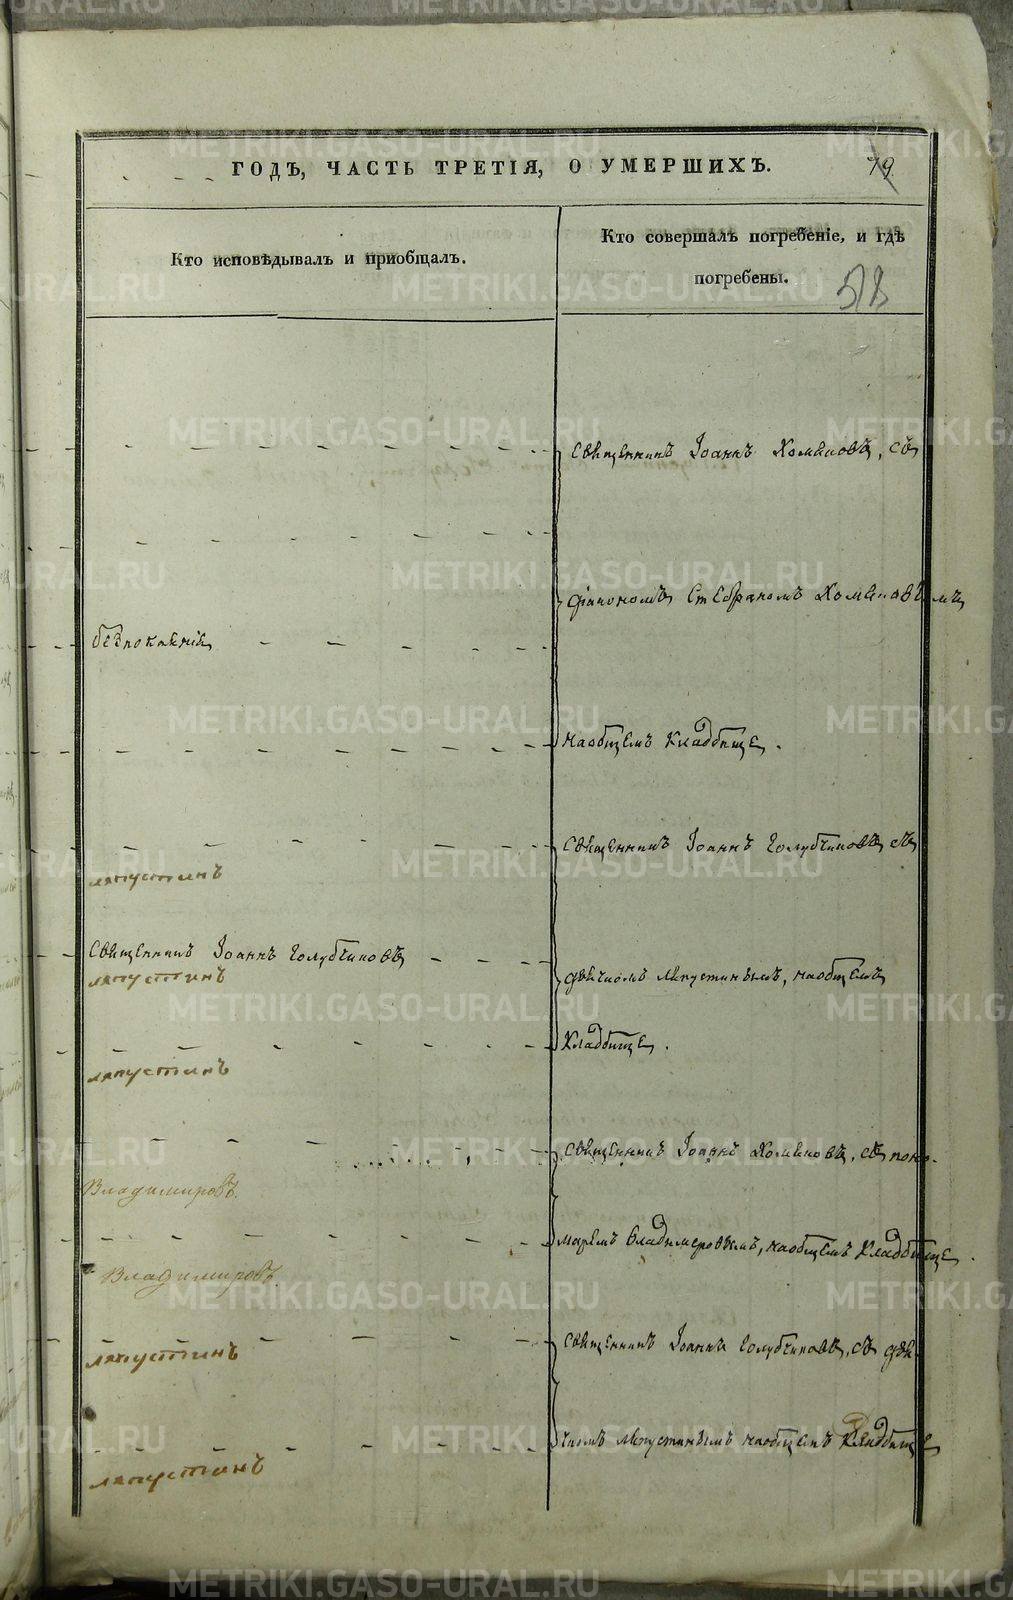 ГОДЪ, ЧАСТЬ ТРЕТІЯ, О УМЕРШИХЪ.
79
Кто исповѣдывалъ и пріобщалъ.
Кто совершалъ погребеніе, и гдѣ
погребены.
58
священникъ Іоаннъ Хомяковъ, съ
діакономъ Стефаномъ Хомяковымъ
безпокаянія
наобщемъ кладбище.
священникъ Іоаннъ Голубчиковъ съ
ляпустинъ
священникъ Іоаннъ Голубчиковъ
ляпустинъ
дьячкомъ ляпустинымъ, наобщемъ
кладбище.
ляпустинъ
священникъ Іоаннъ Хомяковъ, съ поно-
Владимировъ
маремъ Владимеровымъ, наобщемъ кладбище.
Владимировъ
священникъ Іоаннъ Голубчиковъ, съ дья-
ляпустинъ
чкомъ ляпустинымъ наобщемъ кладбище
ляпустинъ
METRIKI.GASO-URAL.RU